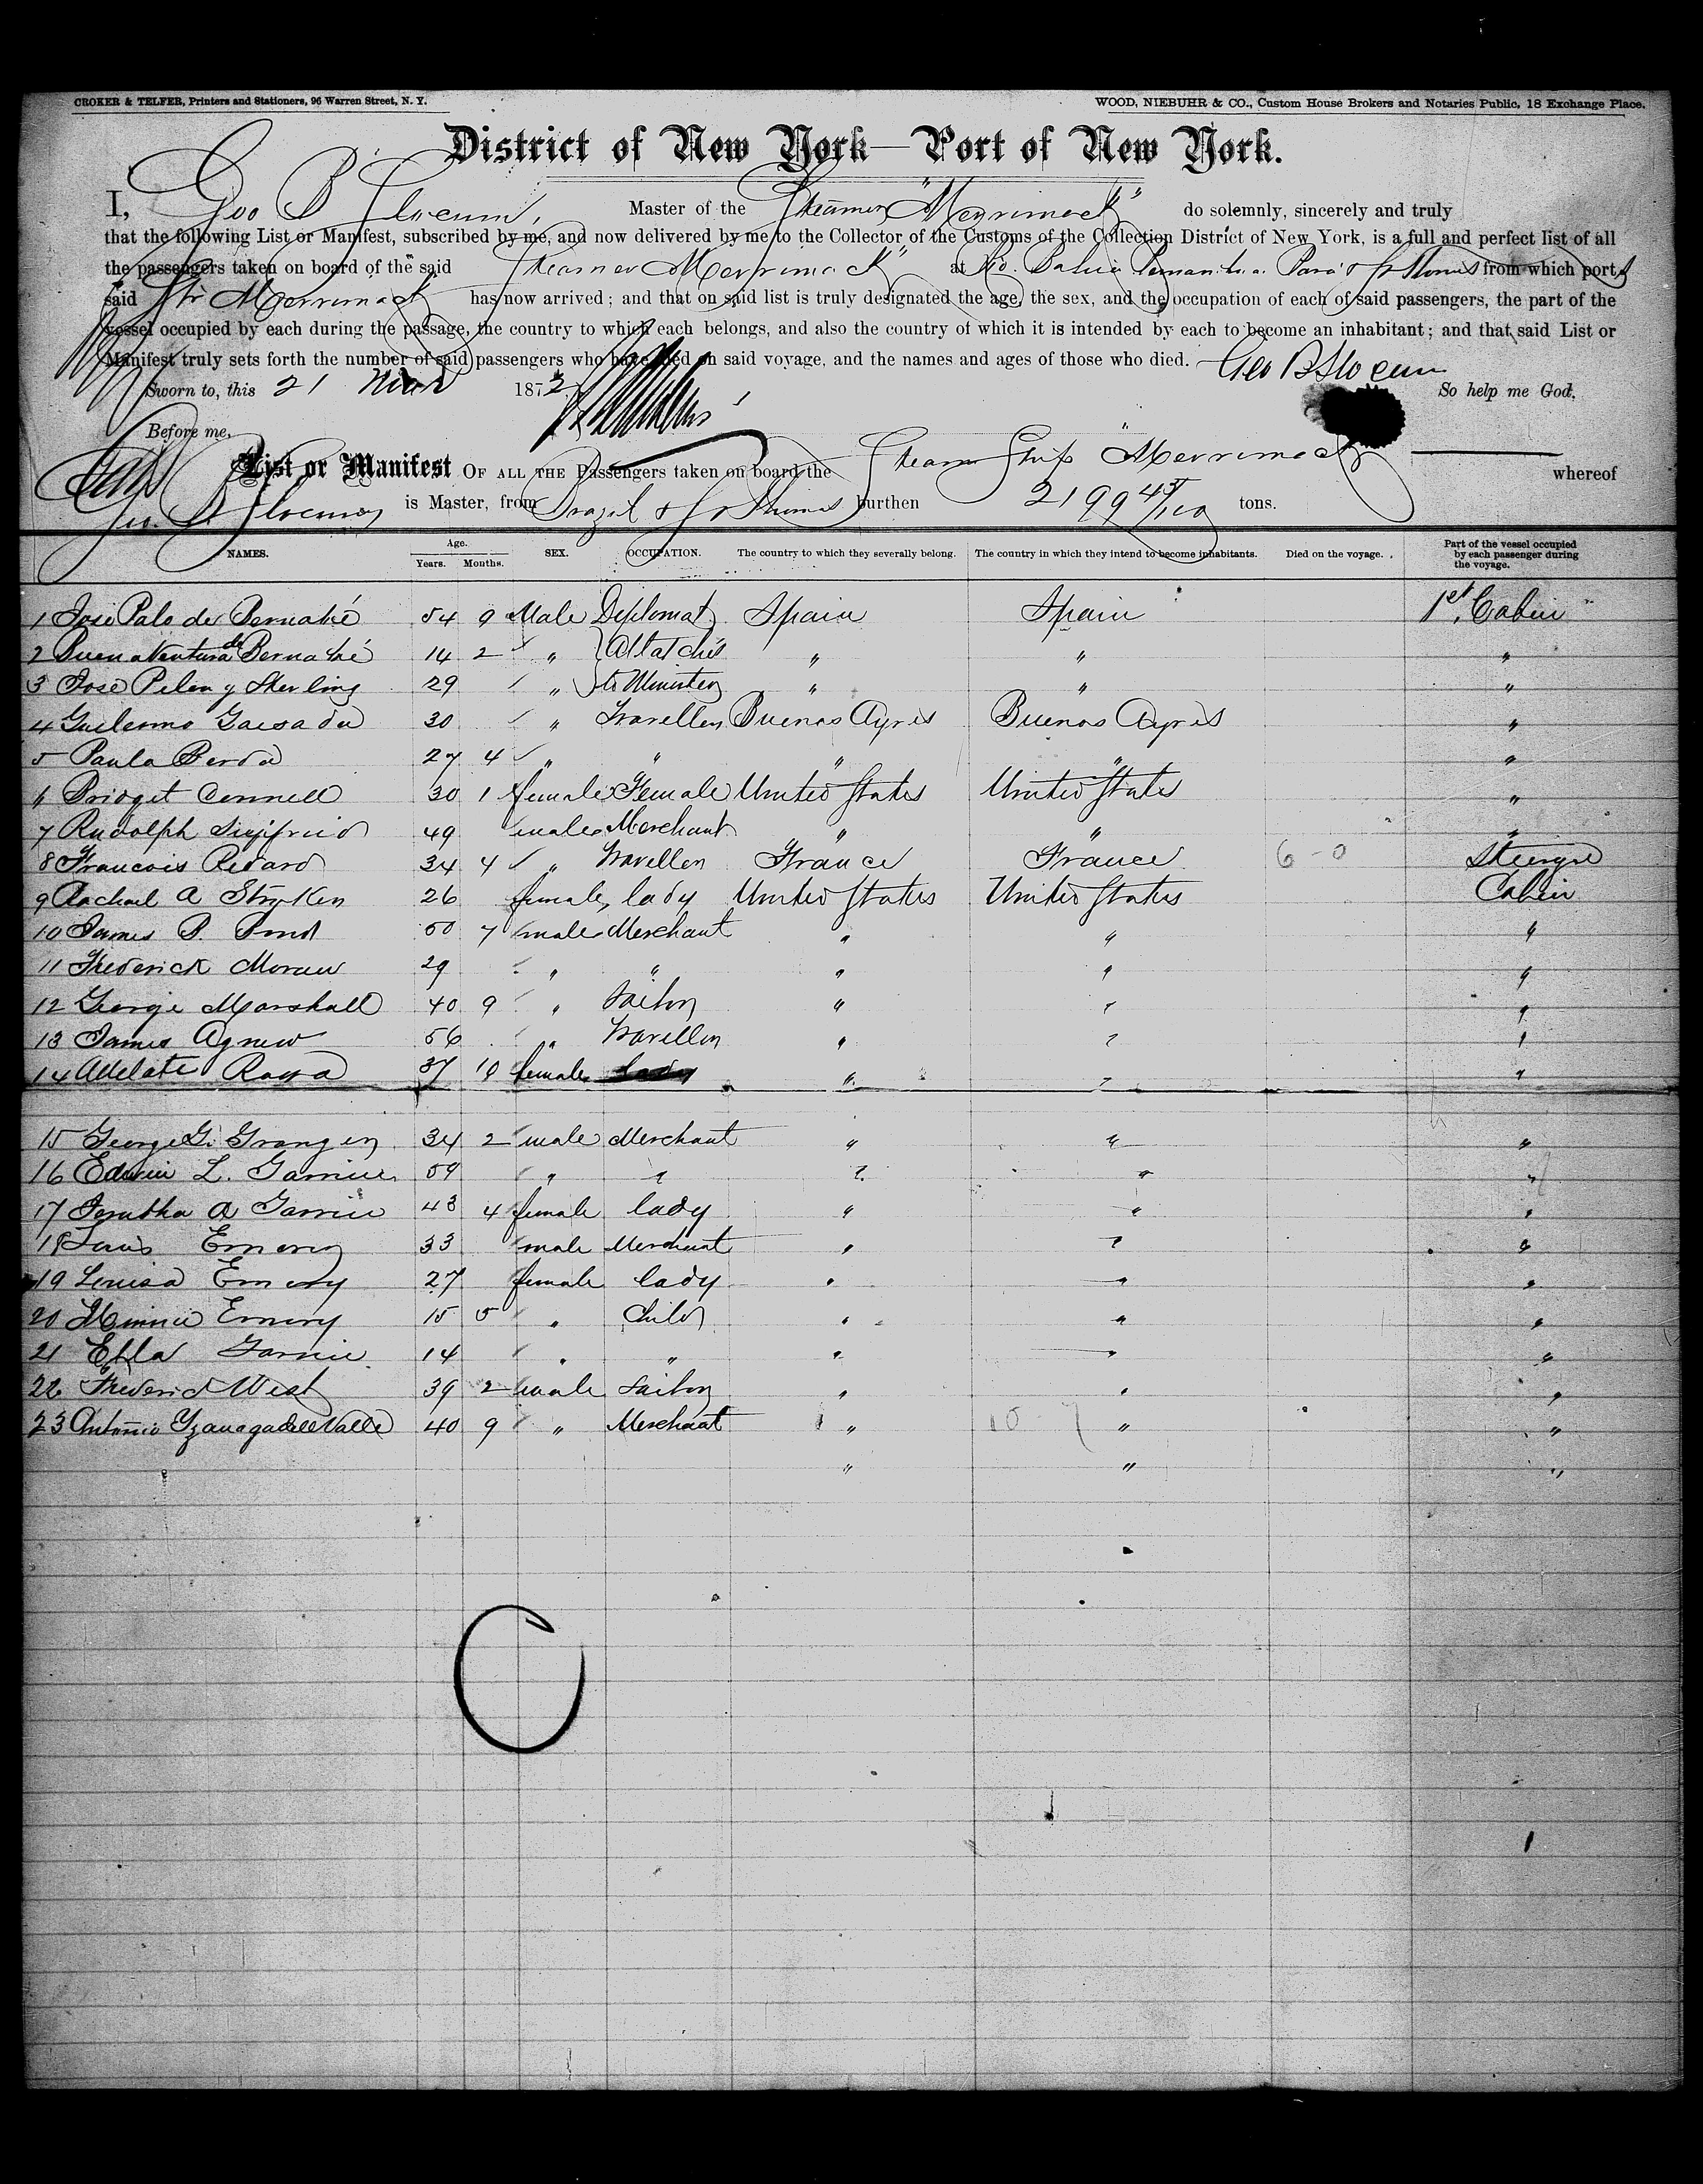 CROKER & TELFER, Printers and Stationers, 96 Warren Street, N. Y.
WOOD, NIEBUHR & CO., Custom House Brokers and Notaries Public, 18 Exchange Place.
District of New York—Port of New York.
I, Geo B Slocum, Master of the Steamer "Merrimack" do solemnly, sincerely and truly
that the following List or Manifest, subscribed by me, and now delivered by me to the Collector of the Customs of the Collection District of New York, is a full and perfect list of all
the passengers taken on board of the said Steamer Merrimack at Rio. Bahia Pernambuco Para & St Thomas from which ports
said Str Merrimack has now arrived; and that on said list is truly designated the age, the sex, and the occupation of each of said passengers, the part of the
vessel occupied by each during the passage, the country to which each belongs, and also the country of which it is intended by each to become an inhabitant; and that said List or
Manifest truly sets forth the number of said passengers who have died on said voyage, and the names and ages of those who died. Geo B Slocum
Sworn to, this 21 1872 So help me God.
Before me,
List or Manifest OF ALL THE Passengers taken on board the Steam Ship "Merrimack whereof
Geo. B Slocum is Master, from Brazil & St Thomas burthen 2199 45/100 tons.
NAMES. Age. Years. Months. SEX. OCCUPATION. The country to which they severally belong. The country in which they intend to become inhabitants. Died on the voyage. Part of the vessel occupied by each passenger during the voyage.
1 José Palo de Bernabé 54 9 Male Diplomat Spain Spain 1st Cabin
2 Buenaventura de Bernabé 14 2 " Attachés " " "
3 José Pelen y Sterling 29 " to Minister " " "
4 30 " Traveller Buenos Ayres Buenos Ayres "
5 Paula 27 4 " " " " "
6 Bridget Connell 30 1 female Female United States United States "
7 Rudolph Siegfried 49 male Merchant " " "
8 Francois Renard 34 4 " Traveller France France 6-0 Steerage
9 Rachael A Stryken 26 female lady United States United States Cabin
10 James B. Bond 50 7 male Merchant " " "
11 Frederick Moran 29 " " " " "
12 George Marshall 40 9 " Sailor " " "
13 James Agnew 56 " Traveller " " "
14 Rossa 37 10 female lady " " "
15 George G. Granger 34 2 male Merchant " " "
16 Edwin L. Garnier 59 " " " " "
17 A Garnier 43 4 female lady " " "
18 Louis Emery 33 male Merchant " " "
19 Louisa Emery 27 female lady " " "
20 Minnie Emery 15 5 " Child " " "
21 Ella Garnier 14 " " " " "
22 Frederick West 39 2 male Sailor " " "
23 Antonio Yznaga del Valle 40 9 " Merchant " 10 - 7 " "
" " "